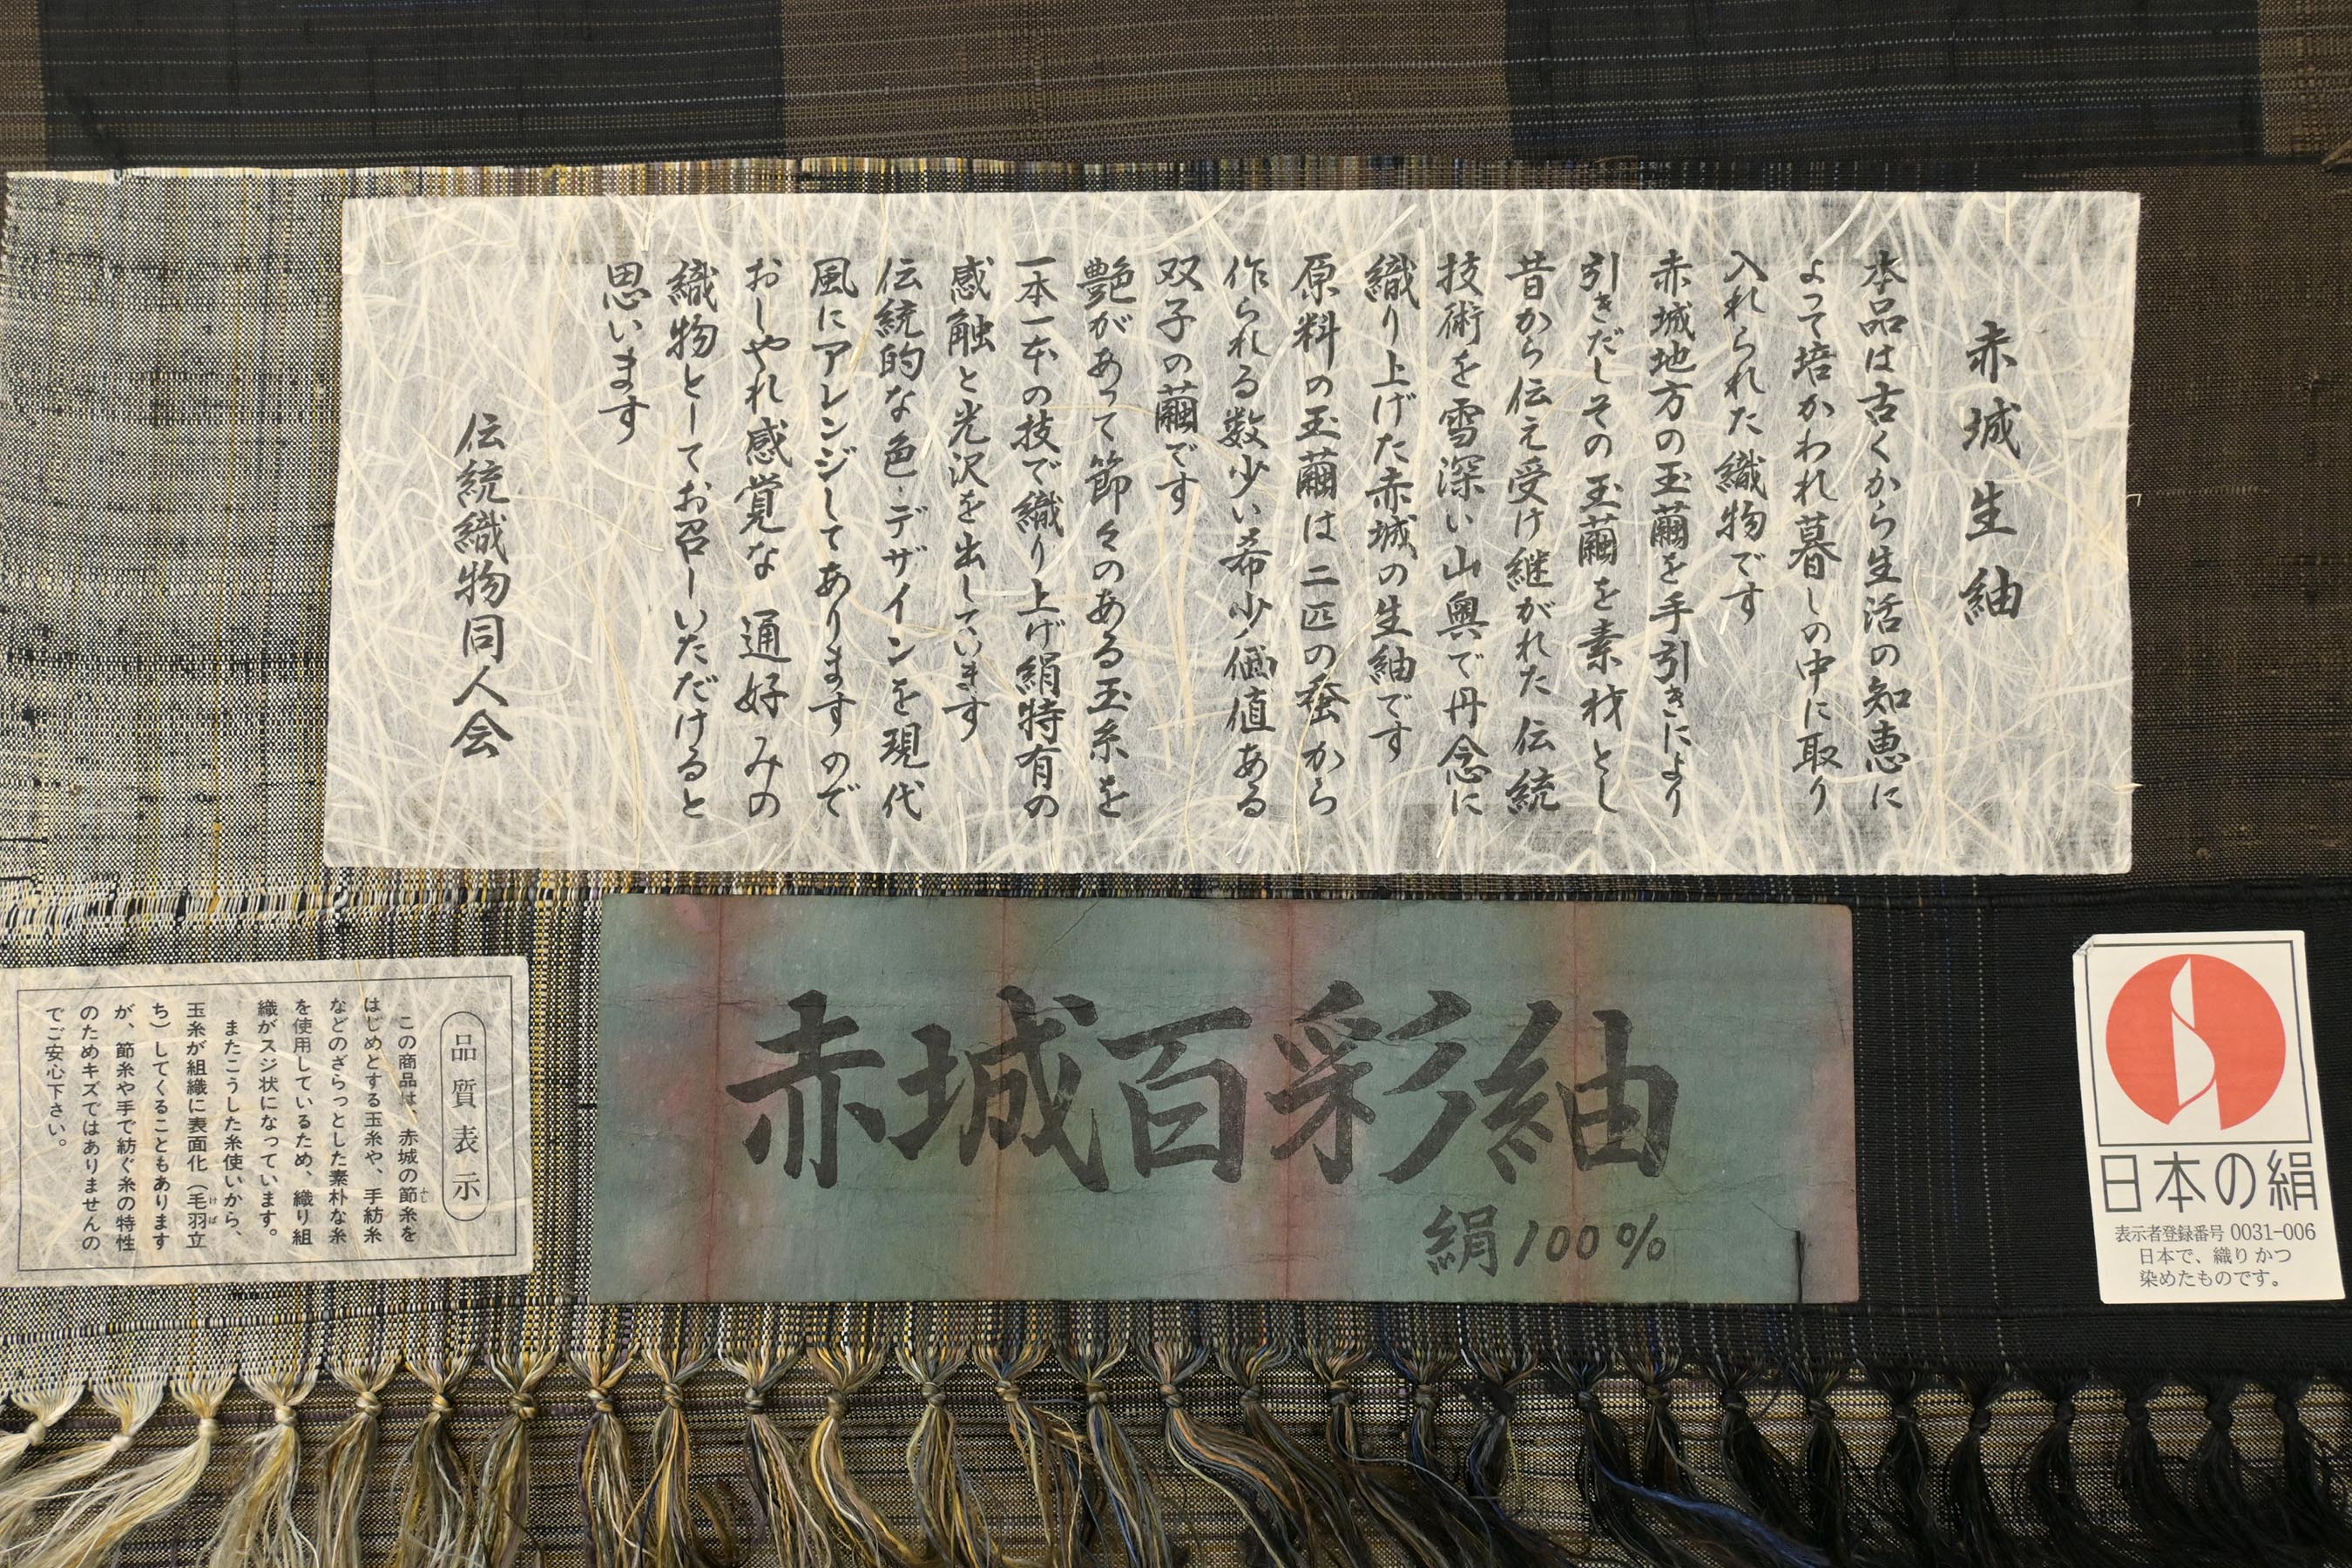 赤城生紬
本品は古くから生活の知恵に
よって培かわれ暮しの中に取り
入れられた織物です
赤城地方の玉繭を手引きにより
引きだしその玉繭を素材とし
昔から伝え受け継がれた伝統
技術を雪深い山奥で丹念に
織り上げた赤城の生紬です
原料の玉繭は二匹の蚕から
作られる数少い希少価値ある
双子の繭です
艶があって節々のある玉糸を
一本一本の技で織り上げ絹特有の
感触と光沢を出しています
伝統的な色・デザインを現代
風にアレンジしてありますので
おしゃれ感覚な通好みの
織物としてお召しいただけると
思います
伝統織物同人会
品質表示
この商品は、赤城の節糸を
はじめとする玉糸や、手紡糸
などのざらっとした素朴な糸
を使用しているため、織り組
織がスジ状になっています。
またこうした糸使いから、
玉糸が組織に表面化（毛羽立
ち）してくることもあります
が、節糸や手で紡ぐ糸の特性
のためキズではありませんの
でご安心下さい。
赤城百彩紬
絹100%
日本の絹
表示者登録番号 0031-006
日本で、織りかつ
染めたものです。